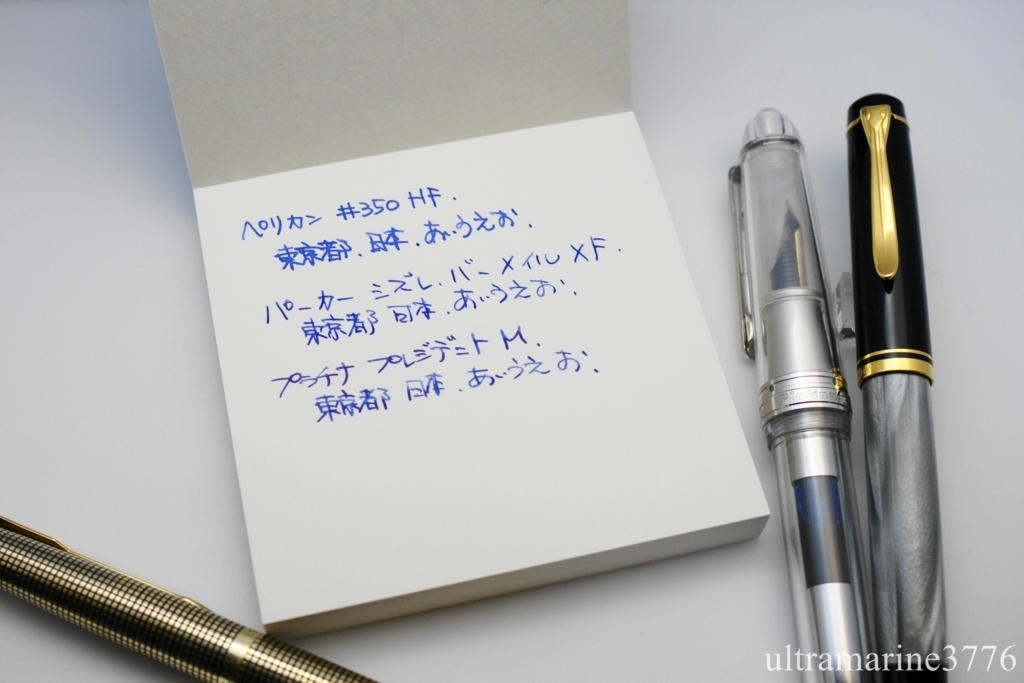 ペリカン #350 HF.
東京都. 日本. あいうえお.
パーカー シズレ. バーメイル XF.
東京都 日本. あいうえお.
プラチナ プレジデント M.
東京都 日本. あいうえお.
ultramarine3776